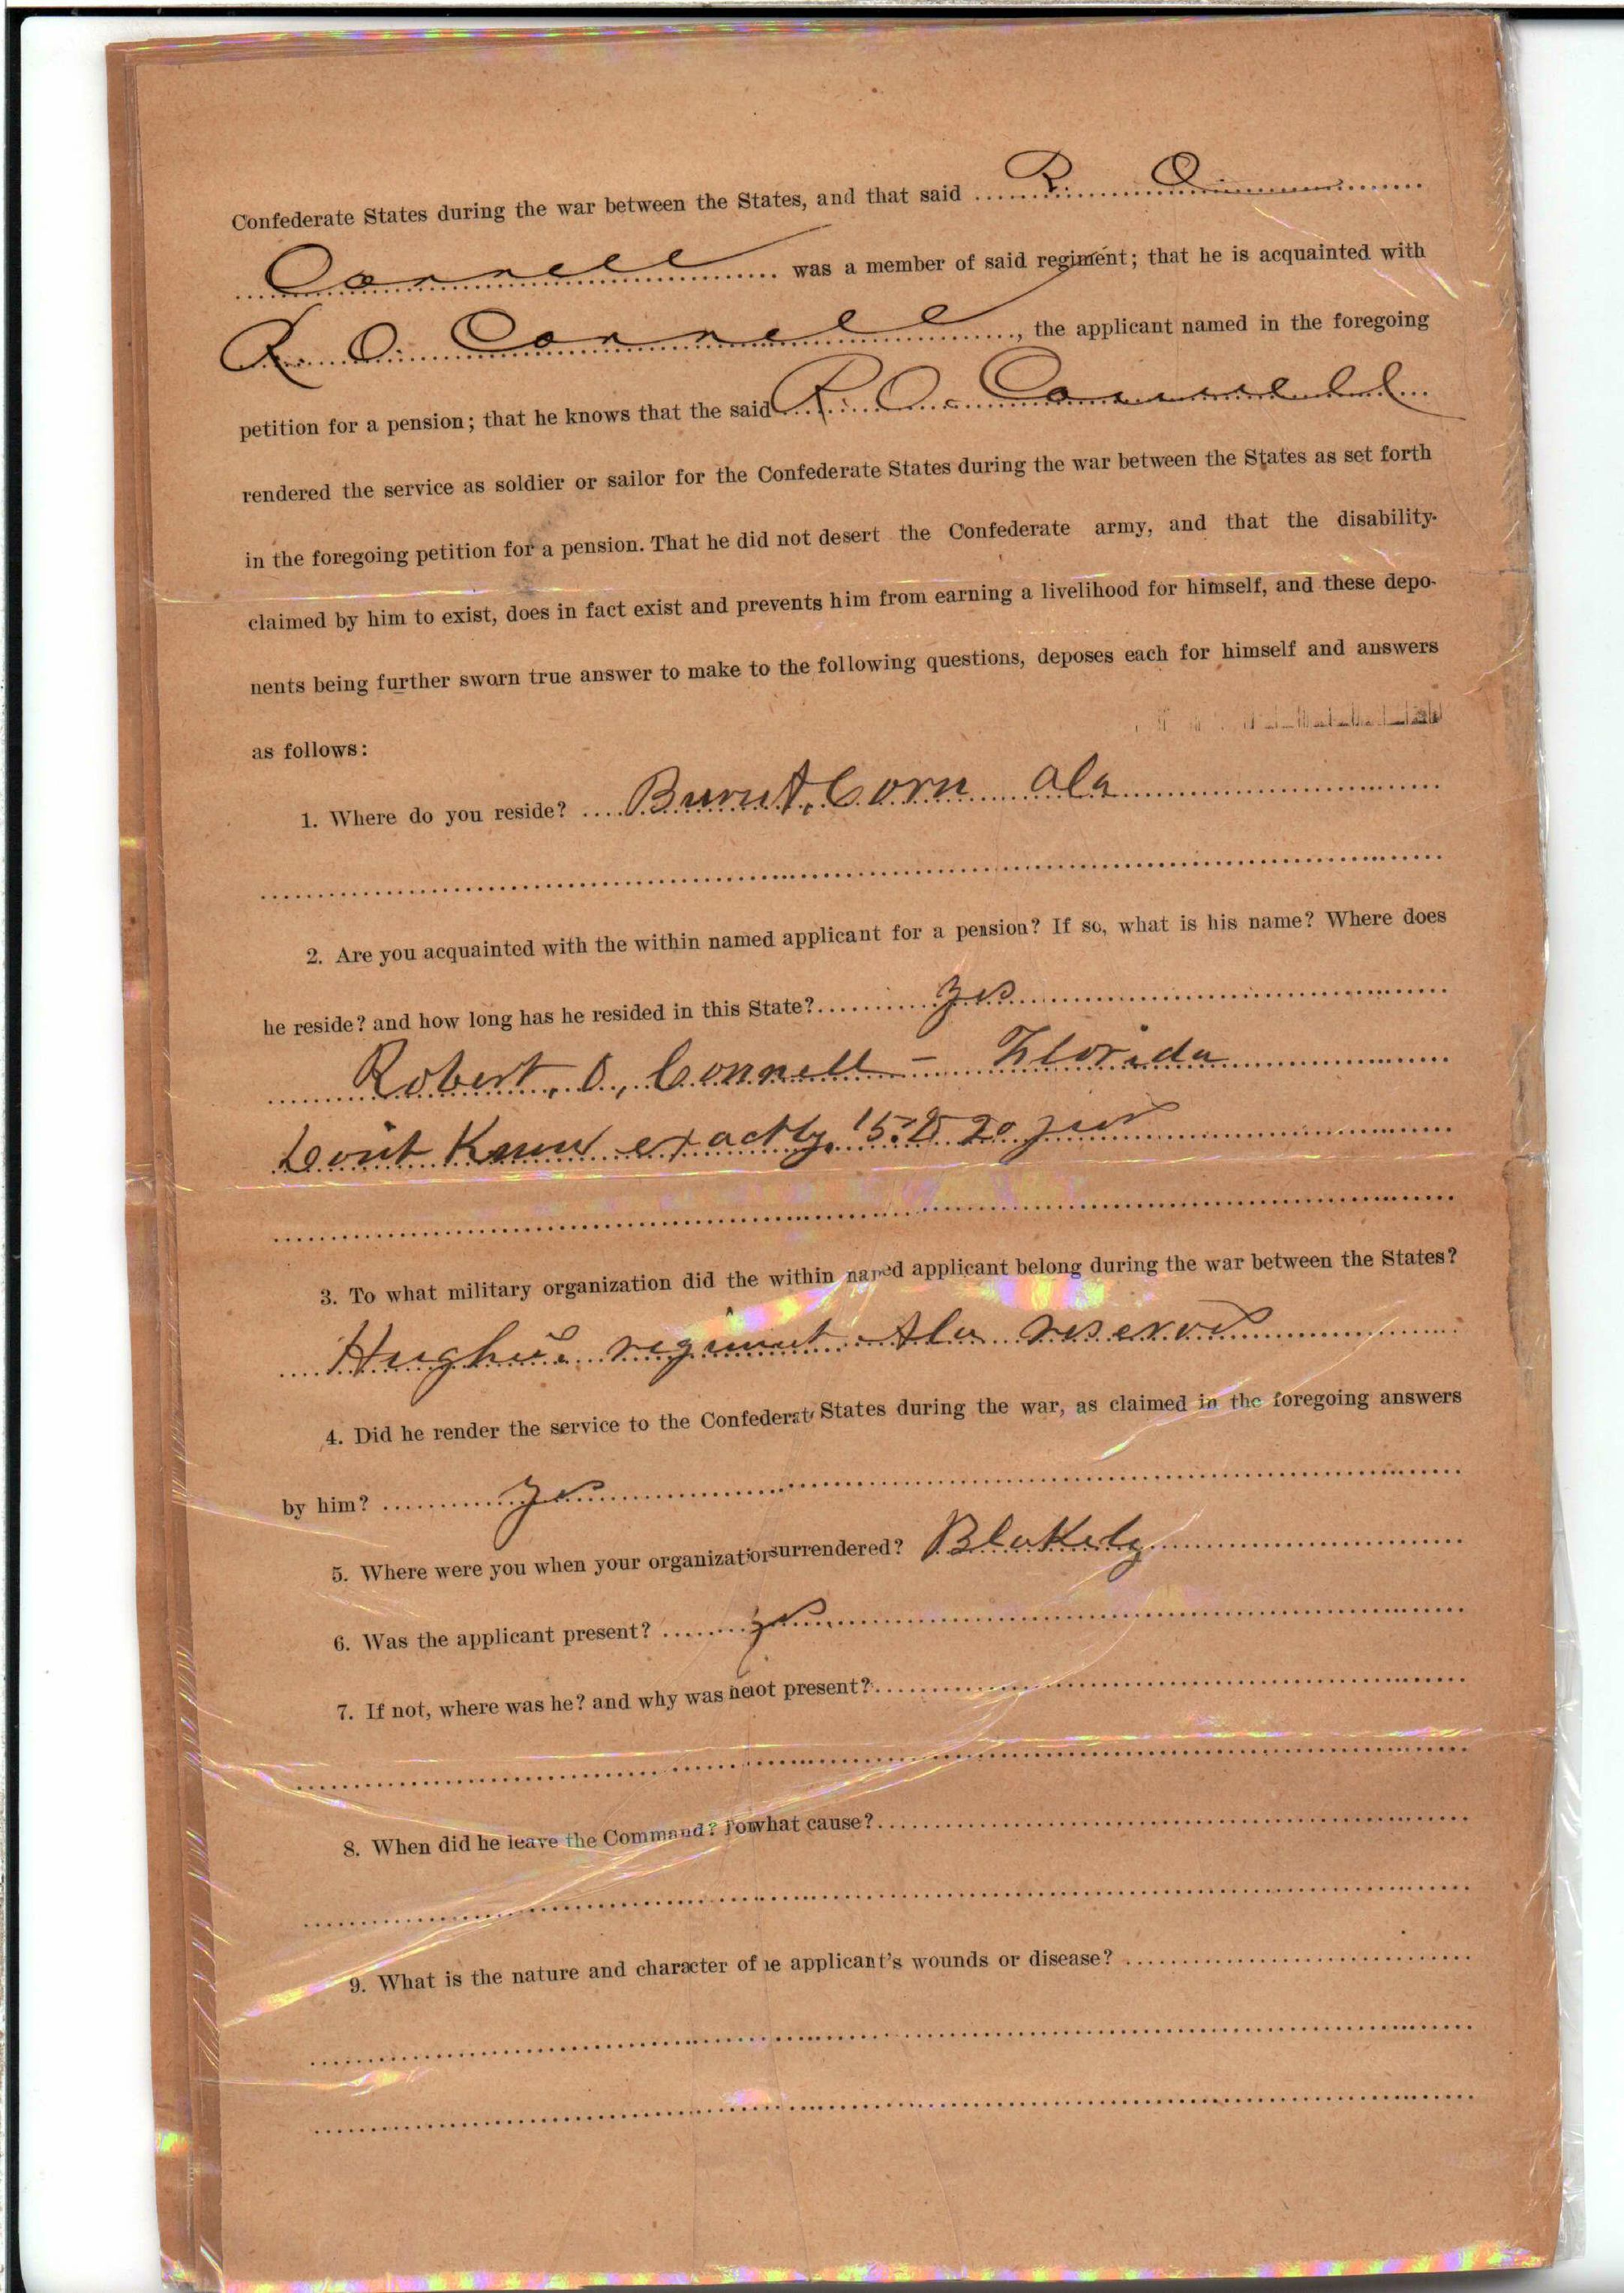 Confederate States during the war between the States, and that said R. O.
Connell was a member of said regiment; that he is acquainted with
R. O. Connell, the applicant named in the foregoing
petition for a pension; that he knows that the said R. O. Connell
rendered the service as soldier or sailor for the Confederate States during the war between the States as set forth
in the foregoing petition for a pension. That he did not desert the Confederate army, and that the disability
claimed by him to exist, does in fact exist and prevents him from earning a livelihood for himself, and these depo-
nents being further sworn true answer to make to the following questions, deposes each for himself and answers
as follows:
1. Where do you reside? Burnt Corn Ala
2. Are you acquainted with the within named applicant for a pension? If so, what is his name? Where does
he reside? and how long has he resided in this State? yes
Robert, O, Connell – Florida
Dont Know exactly. 15 20 yrs
3. To what military organization did the within named applicant belong during the war between the States?
regiment Ala reserves
4. Did he render the service to the Confederate States during the war, as claimed in the foregoing answers
by him? yes
5. Where were you when your organization surrendered? Blakely
6. Was the applicant present? yes
7. If not, where was he? and why was he not present?
8. When did he leave the Command? For what cause?
9. What is the nature and character of the applicant's wounds or disease?